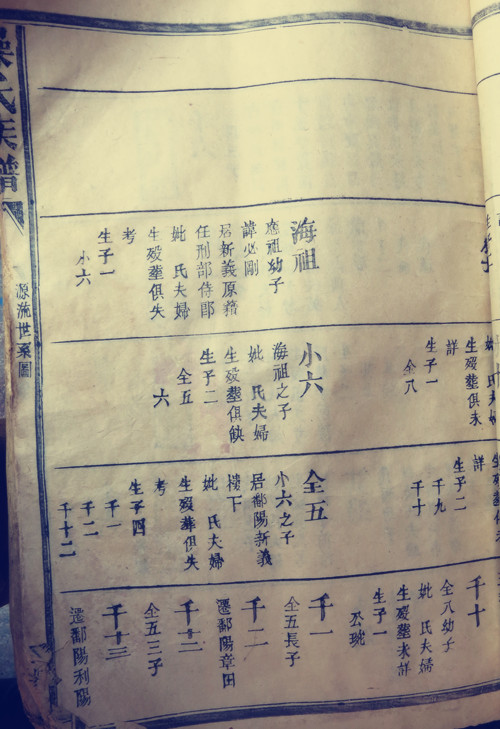 海祖
應祖幼子
諱必剛
居新義原籍
任刑部侍郎
妣 氏夫婦
生殁塋俱失
考
生子一
小六
生殁塋俱未
詳
生子一
全八
小六
海祖之子
妣 氏夫婦
生殁塋俱缺
生子二
全五
六
詳
生子二
千九
千十
全五
小六之子
居鄱陽新義
樓下
妣 氏夫婦
生殁葬俱失
考
生子四
千一
千二
千十二
千十
全八幼子
妣 氏夫婦
生殁塋未詳
生子一
公琬
千一
全五長子
千二
遷鄱陽章田
千十二
全五三子
千十三
遷鄱陽利陽
氏族譜
源流世系圖